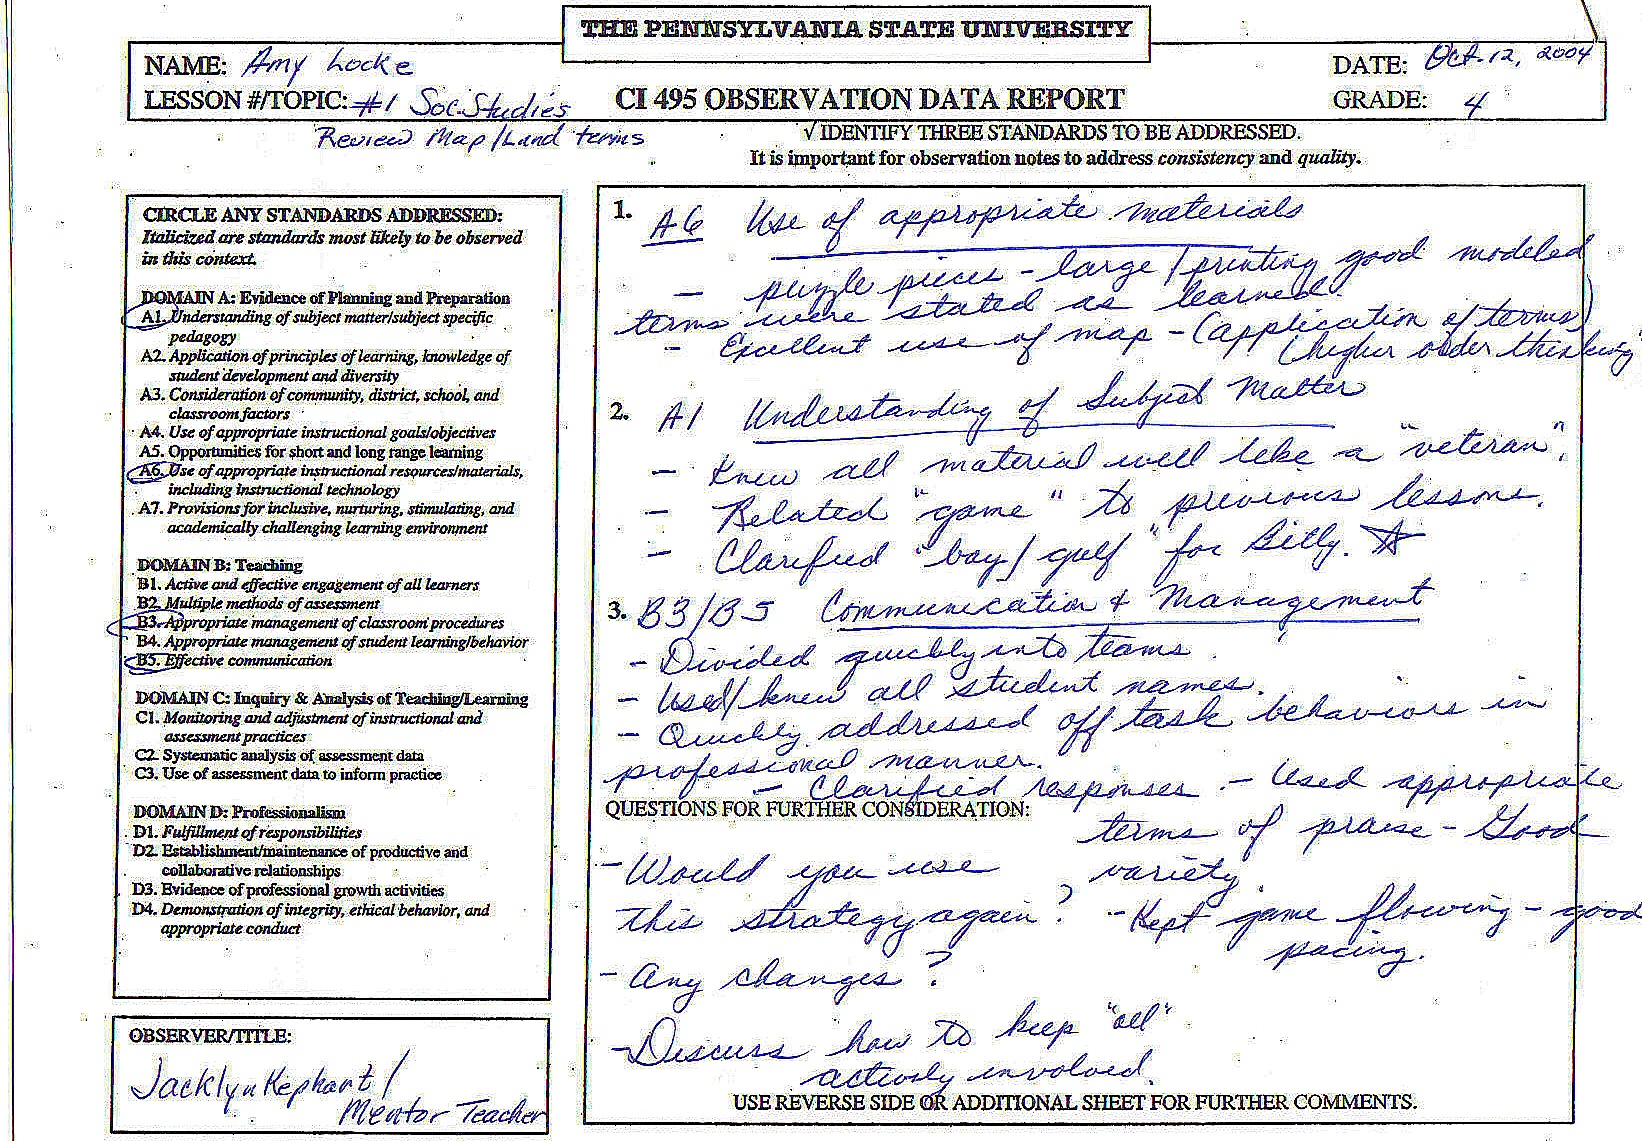 THE PENNSYLVANIA STATE UNIVERSITY
NAME: Amy Locke
DATE: Oct. 12, 2004
LESSON #/TOPIC: #1 Soc. Studies
CI 495 OBSERVATION DATA REPORT
GRADE: 4
Review Map/Land terms
√ IDENTIFY THREE STANDARDS TO BE ADDRESSED.
It is important for observation notes to address consistency and quality.
CIRCLE ANY STANDARDS ADDRESSED:
Italicized are standards most likely to be observed
in this context.
DOMAIN A: Evidence of Planning and Preparation
A1. Understanding of subject matter/subject specific
pedagogy
A2. Application of principles of learning, knowledge of
student development and diversity
A3. Consideration of community, district, school, and
classroom factors
A4. Use of appropriate instructional goals/objectives
A5. Opportunities for short and long range learning
A6. Use of appropriate instructional resources/materials,
including instructional technology
A7. Provisions for inclusive, nurturing, stimulating, and
academically challenging learning environment
DOMAIN B: Teaching
B1. Active and effective engagement of all learners
B2. Multiple methods of assessment
B3. Appropriate management of classroom procedures
B4. Appropriate management of student learning/behavior
B5. Effective communication
DOMAIN C: Inquiry & Analysis of Teaching/Learning
C1. Monitoring and adjustment of instructional and
assessment practices
C2. Systematic analysis of assessment data
C3. Use of assessment data to inform practice
DOMAIN D: Professionalism
D1. Fulfillment of responsibilities
D2. Establishment/maintenance of productive and
collaborative relationships
D3. Evidence of professional growth activities
D4. Demonstration of integrity, ethical behavior, and
appropriate conduct
OBSERVER/TITLE:
Jacklyn Kephart/
Mentor Teacher
1. A6 Use of appropriate materials
- puzzle pieces - large/printing good modeled
terms were stated as learned.
- Excellent use of map - (application of terms)
(higher order thinking"
2. A1 Understanding of Subject Matter
- Knew all material well like a "veteran".
- Related "game" to previous lessons.
- Clarified "bay/gulf" for Billy. ☆
3. B3/B5 Communication & Management
- Divided quickly into teams.
- Used/knew all student names.
- Quickly addressed off task behaviors in
professional manner.
- Clarified responses - Used appropriate
terms of praise - Good
variety.
- Kept game flowing - good
pacing.
QUESTIONS FOR FURTHER CONSIDERATION:
- Would you use
this strategy again?
- Any changes?
- Discuss how to keep "all"
actively involved.
USE REVERSE SIDE OR ADDITIONAL SHEET FOR FURTHER COMMENTS.